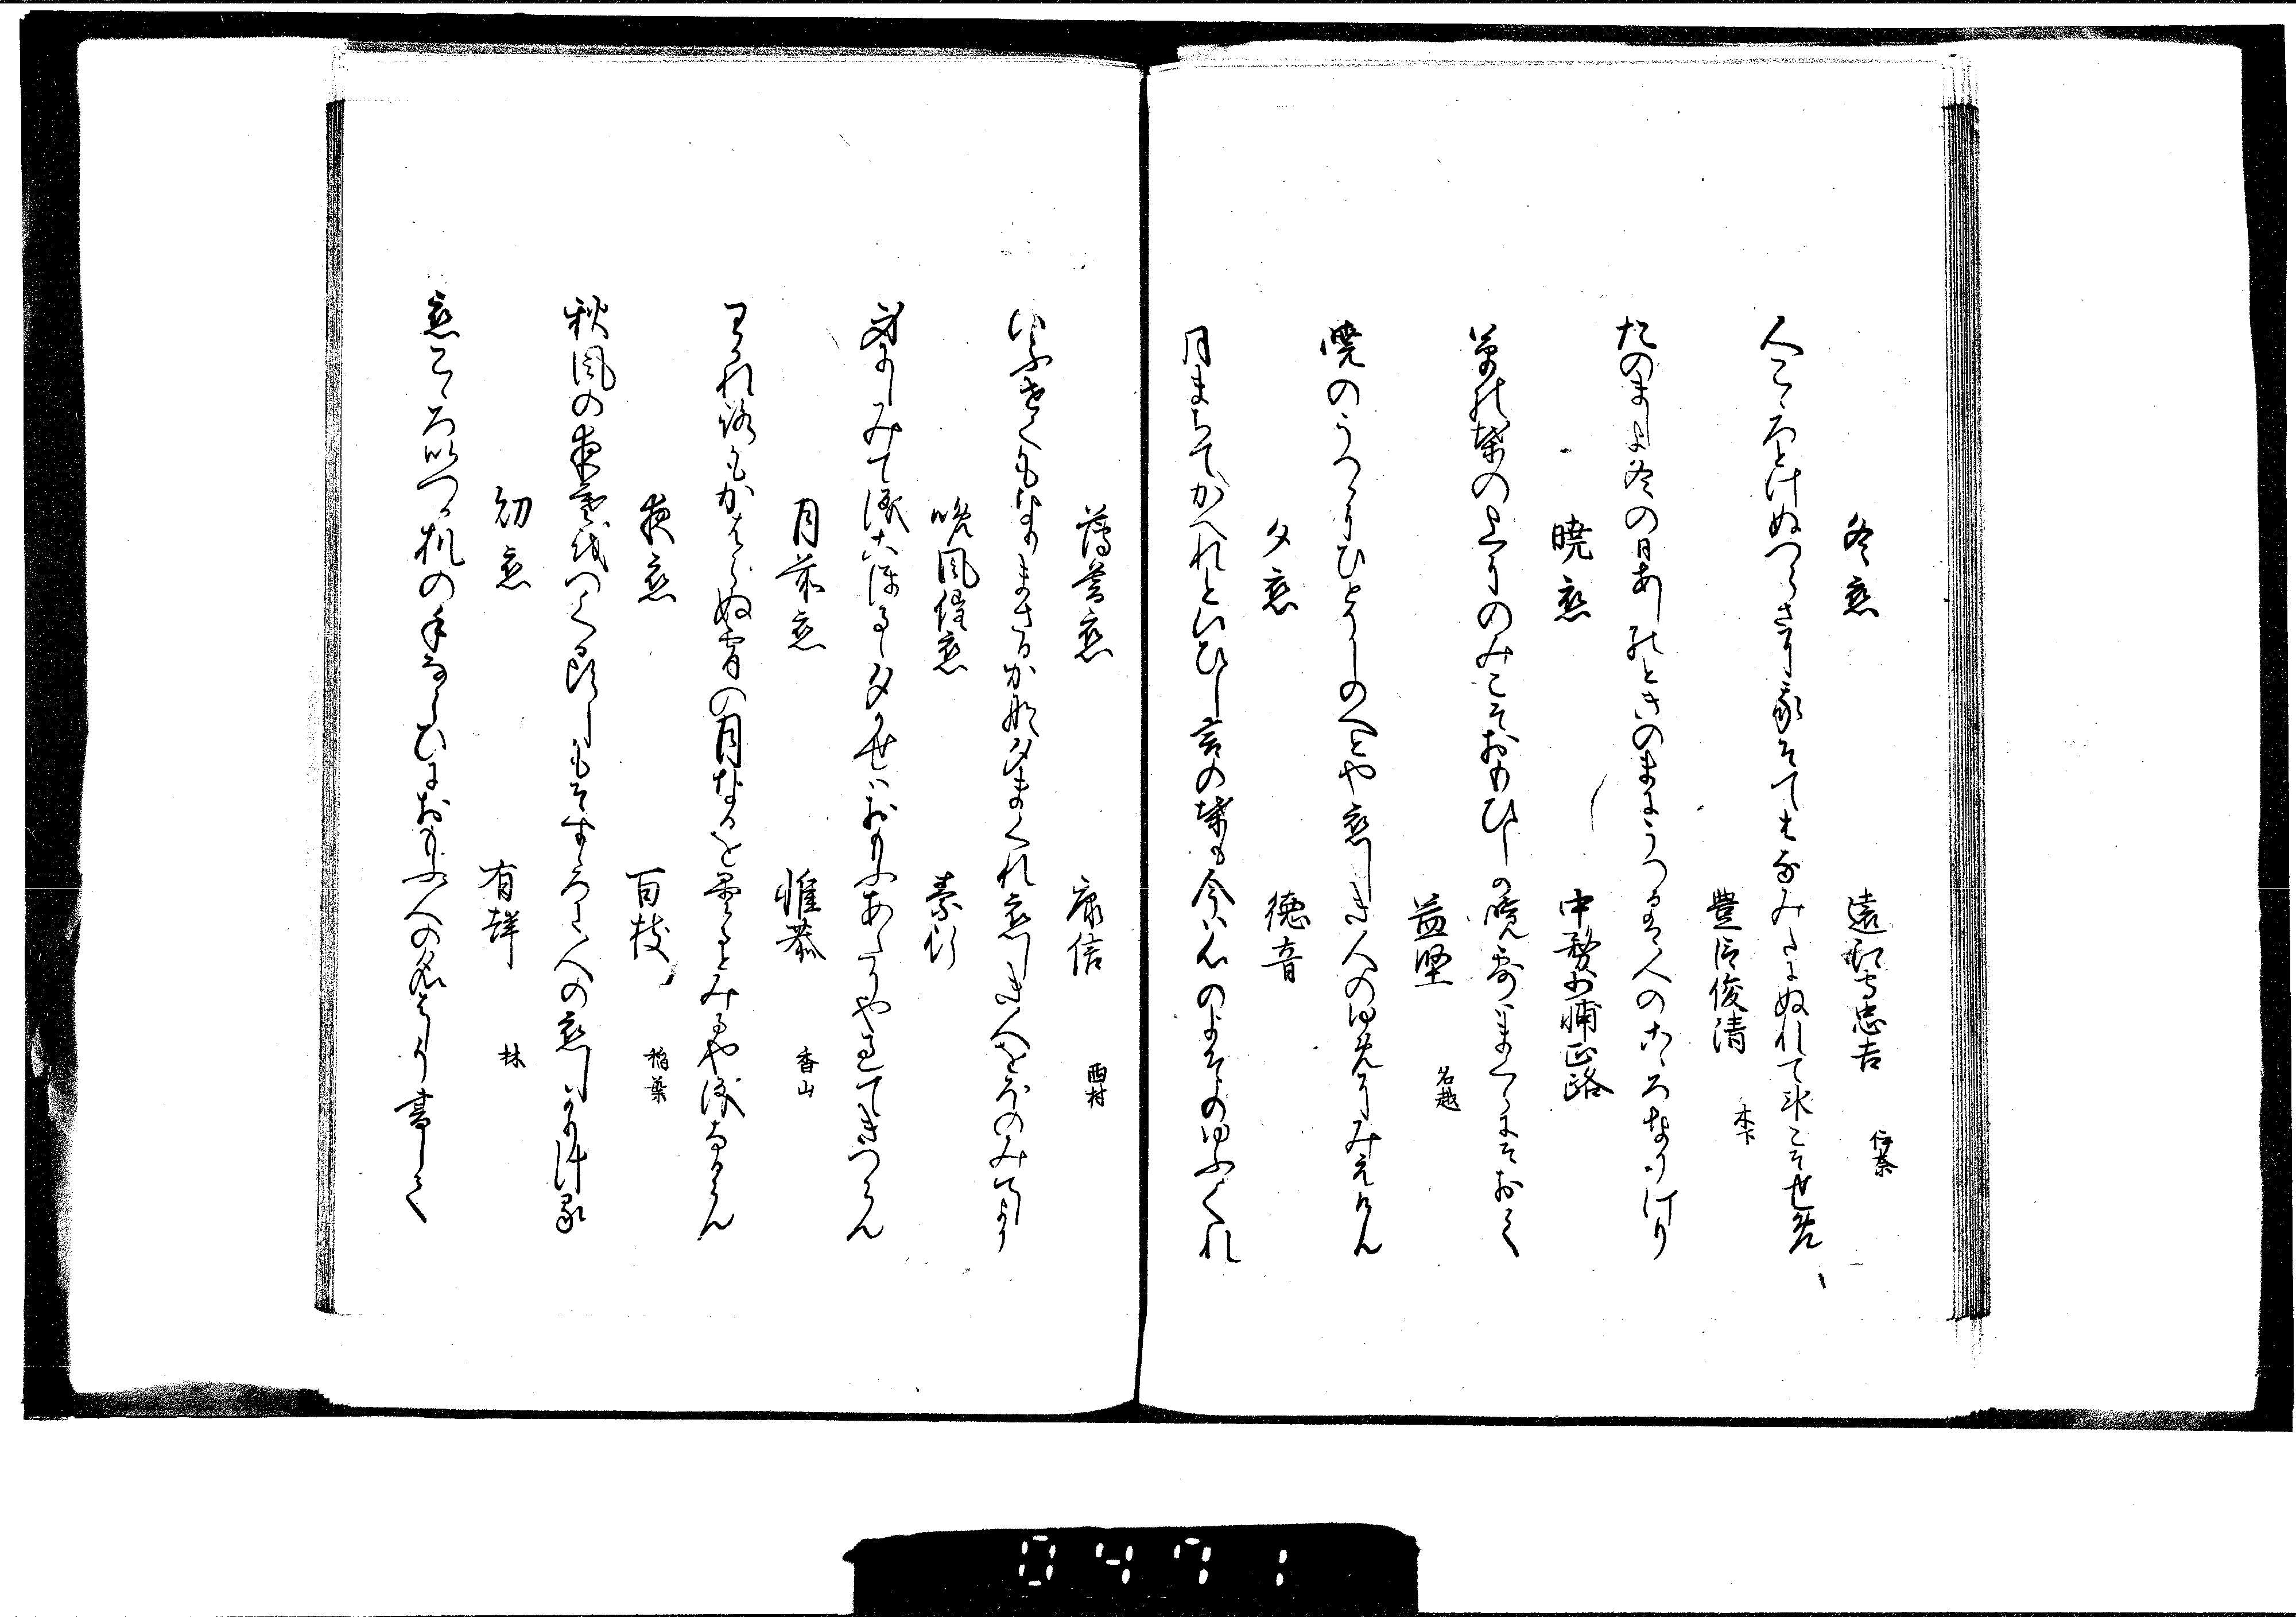 冬恋
遠江守忠吉 伊奈
人こゝろとけぬつらさに我そてはなみたにぬれて氷こそせめ
豊臣俊清 木下
たのましよ冬の日あしのときのまにうつるは人のこゝろなりけり
暁恋
中務少輔正路
草の葉の上にのみこそおもひしの暁露はまくらにそおく
益堅 名越
暁のうつりひとりしのへとや恋しき人のゆめにみえけん
夕恋
徳音
月まちてかへれといひし言の葉も今は心のよそのゆふくれ
薄暮恋
康信 西村
いふせくもなりまさるかな夕まくれ恋しき人をほのみてしより
晩風催恋
素行
身にしみて涙こほるゝ夕かせはおもふあたりやをてきつらん
月前恋
惟恭 香山
わかれ路もかはらぬ宵の月なるを曇るとみるや涙なるらん
夜恋
百枝 稲葉
秋風の夜寒をつくる頃しもそすゝろに人の恋しかりける
初恋
有祥 林
恋こゝろいつゝ机の手ならひにおもふ人の名をより書しく
0471